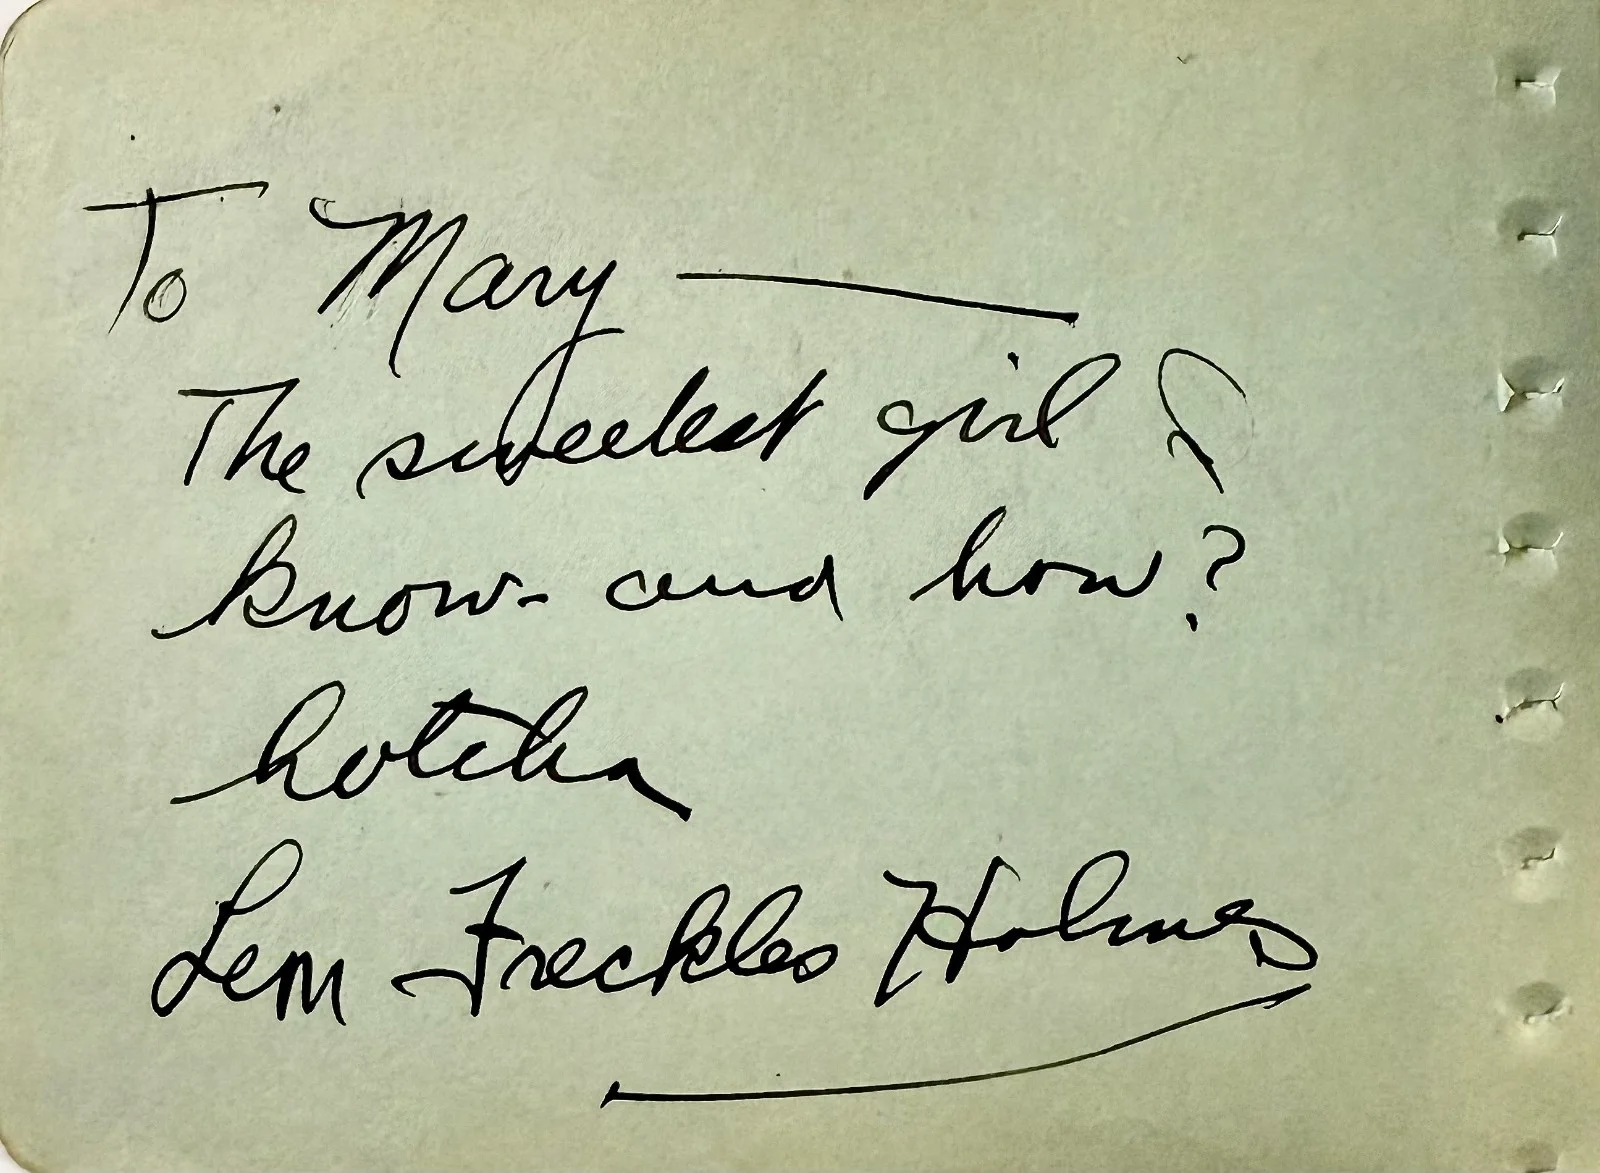 To Mary —
The sweetest girl I
know - and how?
hotcha
Lem Freckles Holmes